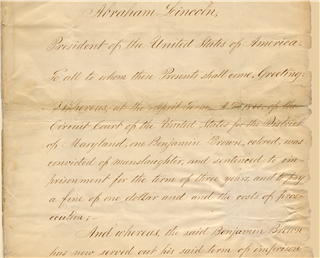 Abraham Lincoln,
President of the United States of America.
To all to whom these Presents shall come, Greeting:
Whereas, at the April Term, of the
Circuit Court of the United States for the District
of Maryland, one Benjamin Brown, colored, was
convicted of manslaughter, and sentenced to im-
prisonment for the term of three years, and to pay
a fine of one dollar and and the costs of prose-
cution;-
And whereas, the said Benjamin Brown
has now served out his said term of imprison-